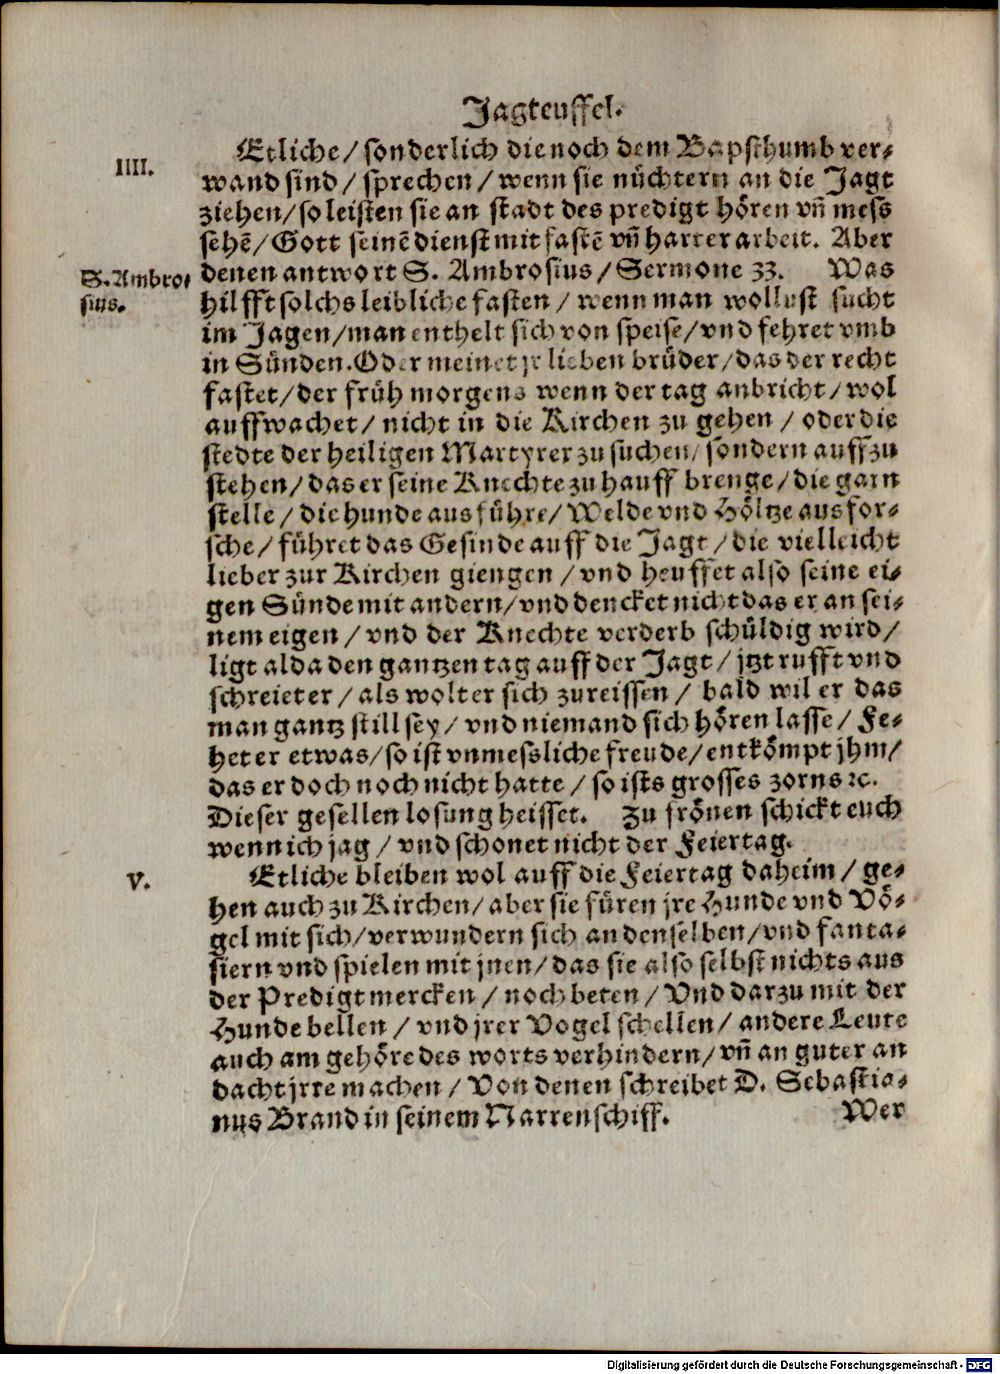 Jagteuffel.
IIII.
Etliche / sonderlich die noch dem Bapsthumb ver-
wand sind / sprechen / wenn sie nüchtern an die Jagt
ziehen / so leisten sie an stadt des predigt hören vñ mess
sehē / Gott seinē dienst mit fastē vñ harter arbeit. Aber
S. Ambro-
sius.
denen antwort S. Ambrosius / Sermone 33. Was
hilfft solchs leibliche fasten / wenn man wollust sucht
im Jagen / man enthelt sich von speise / vnd fehret vmb
in Sünden. Oder meinet jr lieben brüder / das der recht
fastet / der früh morgens wenn der tag anbricht / wol
auffwachet / nicht in die Kirchen zu gehen / oder die
stedte der heiligen Martyrer zu suchen / sondern auffzu
stehen / das er seine Knechte zu hauff brenge / die garn
stelle / die hunde ausführe / Welde vnd Höltze ausfor-
sche / führet das Gesinde auff die Jagt / die vielleicht
lieber zur Kirchen giengen / vnd heuffet also seine ei-
gen Sünde mit andern / vnd dencket nicht das er an sei-
nem eigen / vnd der Knechte verderb schüldig wird /
ligt alda den gantzen tag auff der Jagt / jtzt rufft vnd
schreiet er / als wolt er sich zureissen / bald wil er das
man gantz still sey / vnd niemand sich hören lasse / Fe-
het er etwas / so ist vnmessliche freude / entkömpt jhm /
das er doch noch nicht hatte / so ists grosses zorns ꝛc.
Dieser gesellen losung heisset. Zu frönen schickt euch
wenn ich jag / vnd schonet nicht der Feiertag.
V.
Etliche bleiben wol auff die Feiertag daheim / ge-
hen auch zu Kirchen / aber sie füren jre Hunde vnd Vö-
gel mit sich / verwundern sich an denselben / vnd fanta-
siern vnd spielen mit jnen / das sie also selbst nichts aus
der Predigt mercken / noch beten / Vnd darzu mit der
Hunde bellen / vnd jrer Vogel schellen / andere Leute
auch am gehöre des worts verhindern / vñ an guter an
dacht jrre machen / Von denen schreibet D. Sebastia-
nus Brand in seinem Narrenschiff.
Wer
Digitalisierung gefördert durch die Deutsche Forschungsgemeinschaft - DFG